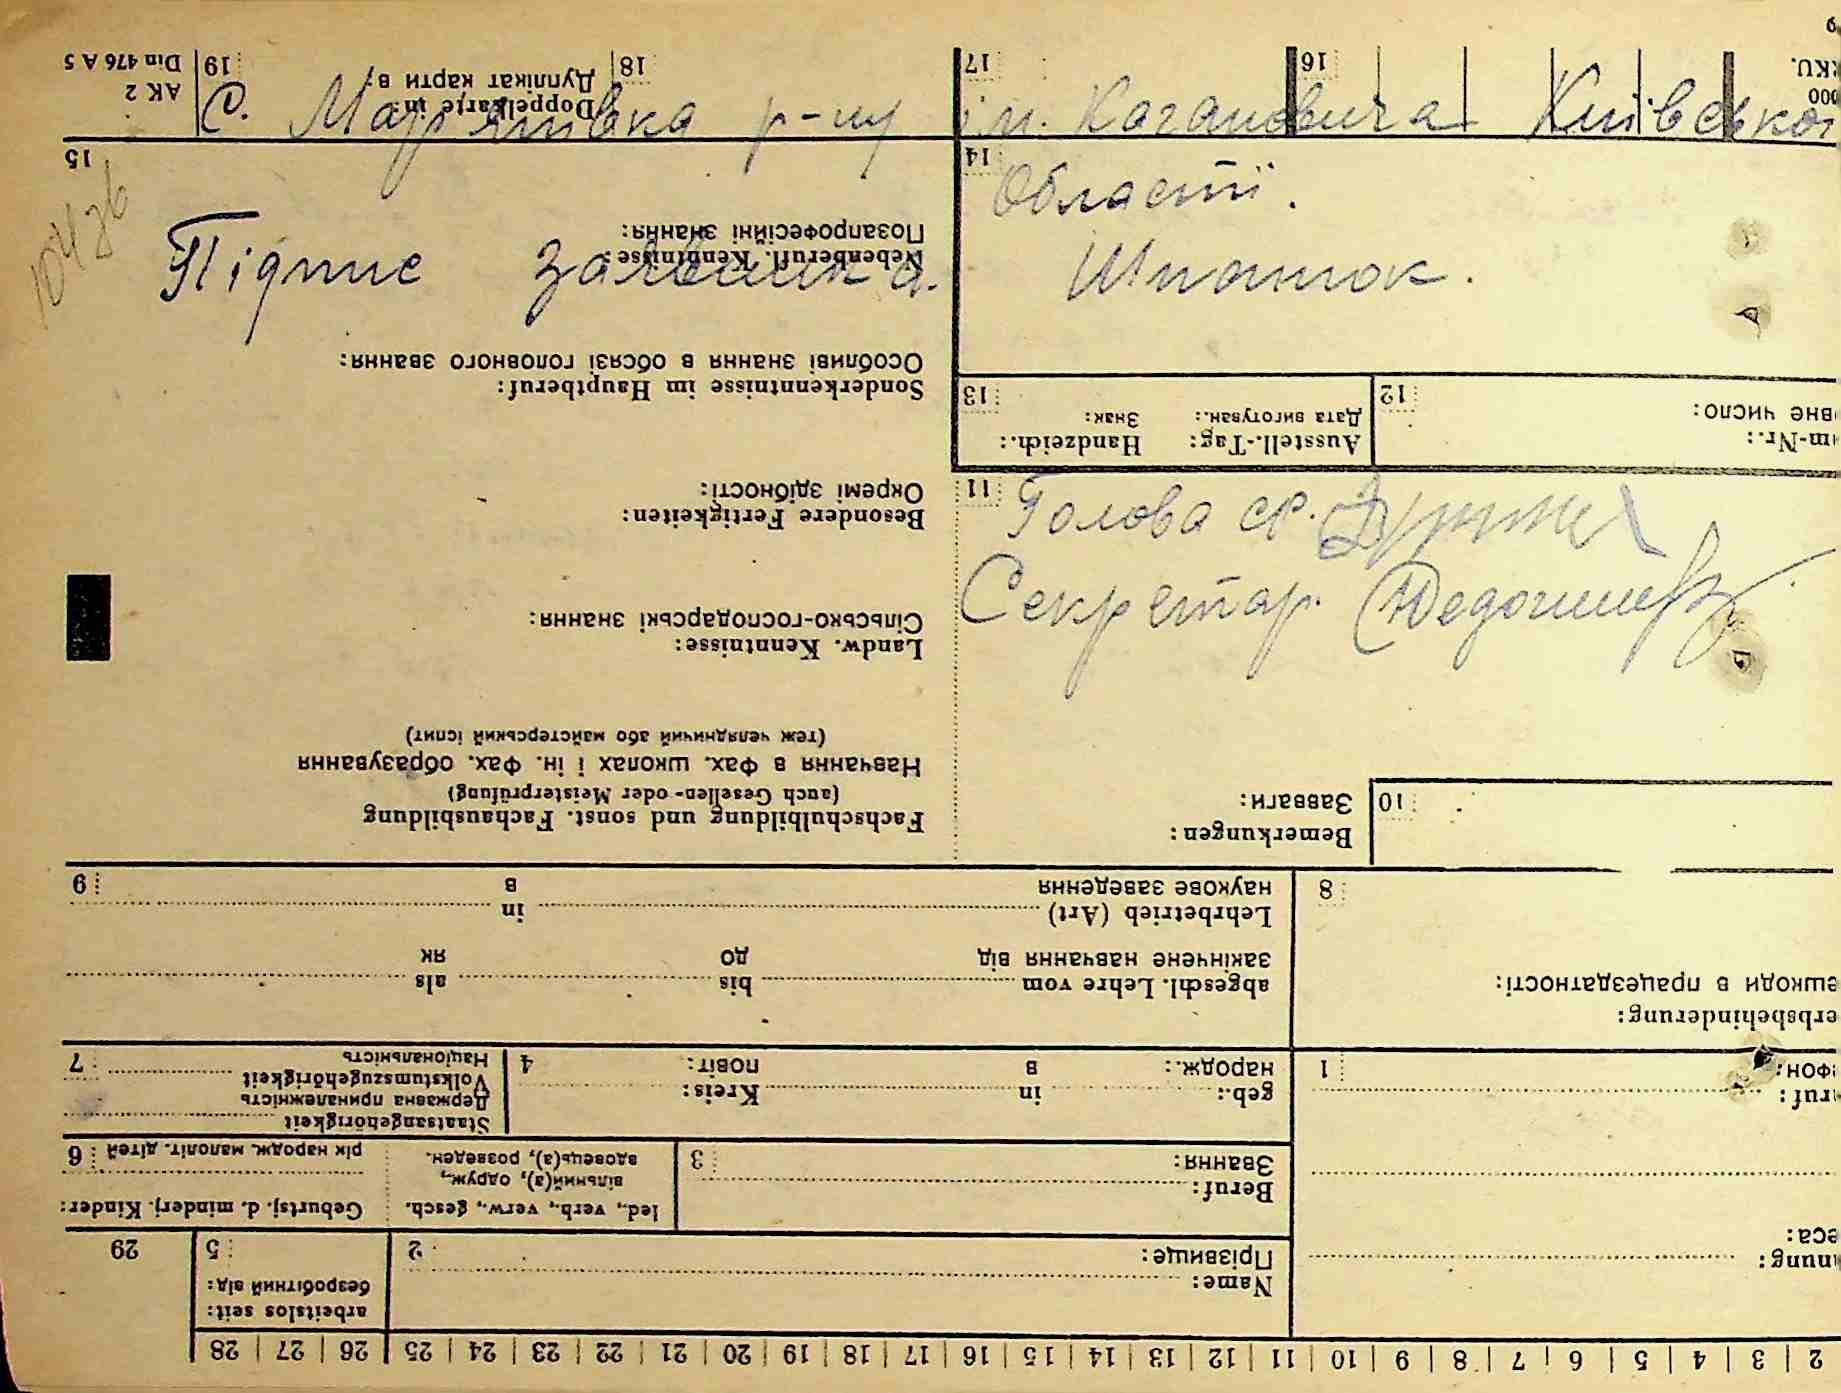 С. Мар'янівка р-ну ім. Кагановича Київської
Області.
Підпис заявника. Шпаток.
Голова ср.
Секретар.
2 | 3 | 4 | 5 | 6 | 7 | 8 | 9 | 10 | 11 | 12 | 13 | 14 | 15 | 16 | 17 | 18 | 19 | 20 | 21 | 22 | 23 | 24 | 25 | 26 | 27 | 28
29
nung:
еса:
Name:
Прізвище: 2
arbeitslos seit:
безробітний від: 5
Beruf:
Звання: 3
led., verh., verw., gesch.
вільний(а), одруж.,
вдовець(а), розведен.
Geburtsj. d. minderj. Kinder:
рік народж. малоліт. дітей 6
ruf:
фон: 1
geb.: in Kreis:
народж.: в повіт: 4
Staatsangehörigkeit
Державна приналежність
Volkstumszugehörigkeit
Національність 7
erbsbehinderung:
ешкоди в працездатності:
8
abgeschl. Lehre vom bis als
закінчене навчання від до як
Lehrbetrieb (Art) in
наукове заведення в 9
10
Bemerkungen:
Завваги:
11
Fachschulbildung und sonst. Fachausbildung
(auch Gesellen- oder Meisterprüfung)
Навчання в фах. школах і ін. фах. образування
(теж челядничий або майстерський іспит)
Landw. Kenntnisse:
Сільсько-господарські знання:
Besondere Fertigkeiten:
Окремі здібності:
Sonderkenntnisse im Hauptberuf:
Особливі знання в обсязі головного звання:
Nebenberufl. Kenntnisse:
Позапрофесійні знання:
15
m-Nr.:
вне число: 12
Ausstell.-Tag: Handzeich.:
Дата виготуван.: Знак: 13
14
16
17
18
Doppelkarte in:
Дуплікат карти в
19
AK 2
Din 476 A 5